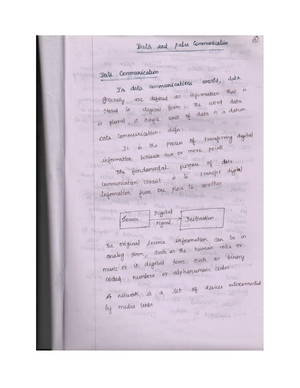 Data and pulse Communication
Data Communication
In data communications world, data
generally are defined as information that is
stored in digital form. The word data
is plural, a single unit of data is a datum
Data communication defn:
It is the process of transferring digital
information between two or more point.
The fundamental purpose of data
communication circuit is to transfer digital
Information from one place to another
Source
Digital
signal
Destination
The original source information can be in
analog form, such as the human voice or
music or in digital form such as binary
coded, numbers or alphanumeric codes.
A network is a set of devices interconnected
by media links